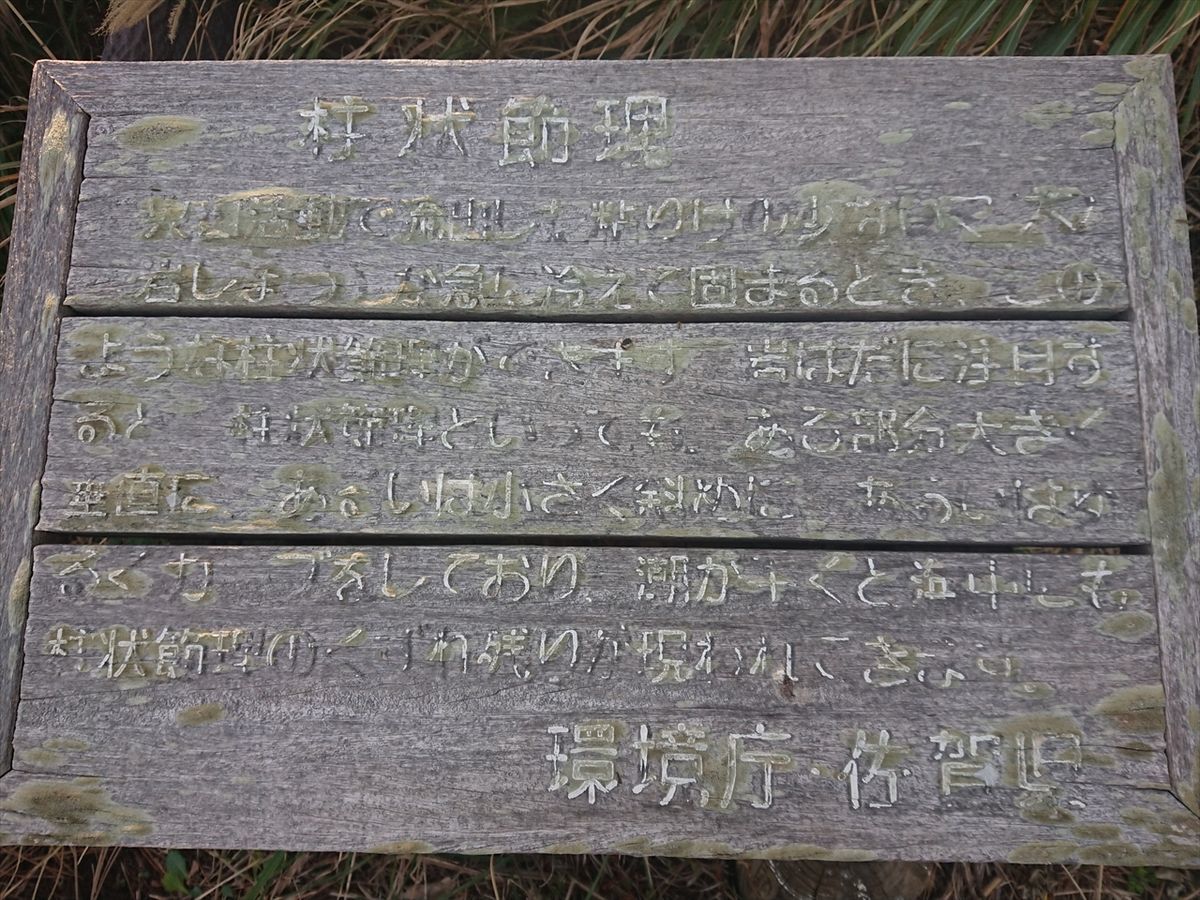 柱状節理
火山活動で流出した粘りけの少ない 大
岩しょう が急に冷えて固まるとき、この
ような柱状節理ができます 岩はだに注目す
ると 柱状節理といっても、ある部分大きく
垂直に、あるいは小さく斜めに あるいはゆ
るくカーブをしており、潮が干くと海中にも
柱状節理のくずれ残りが現われてきます
環境庁・佐賀県